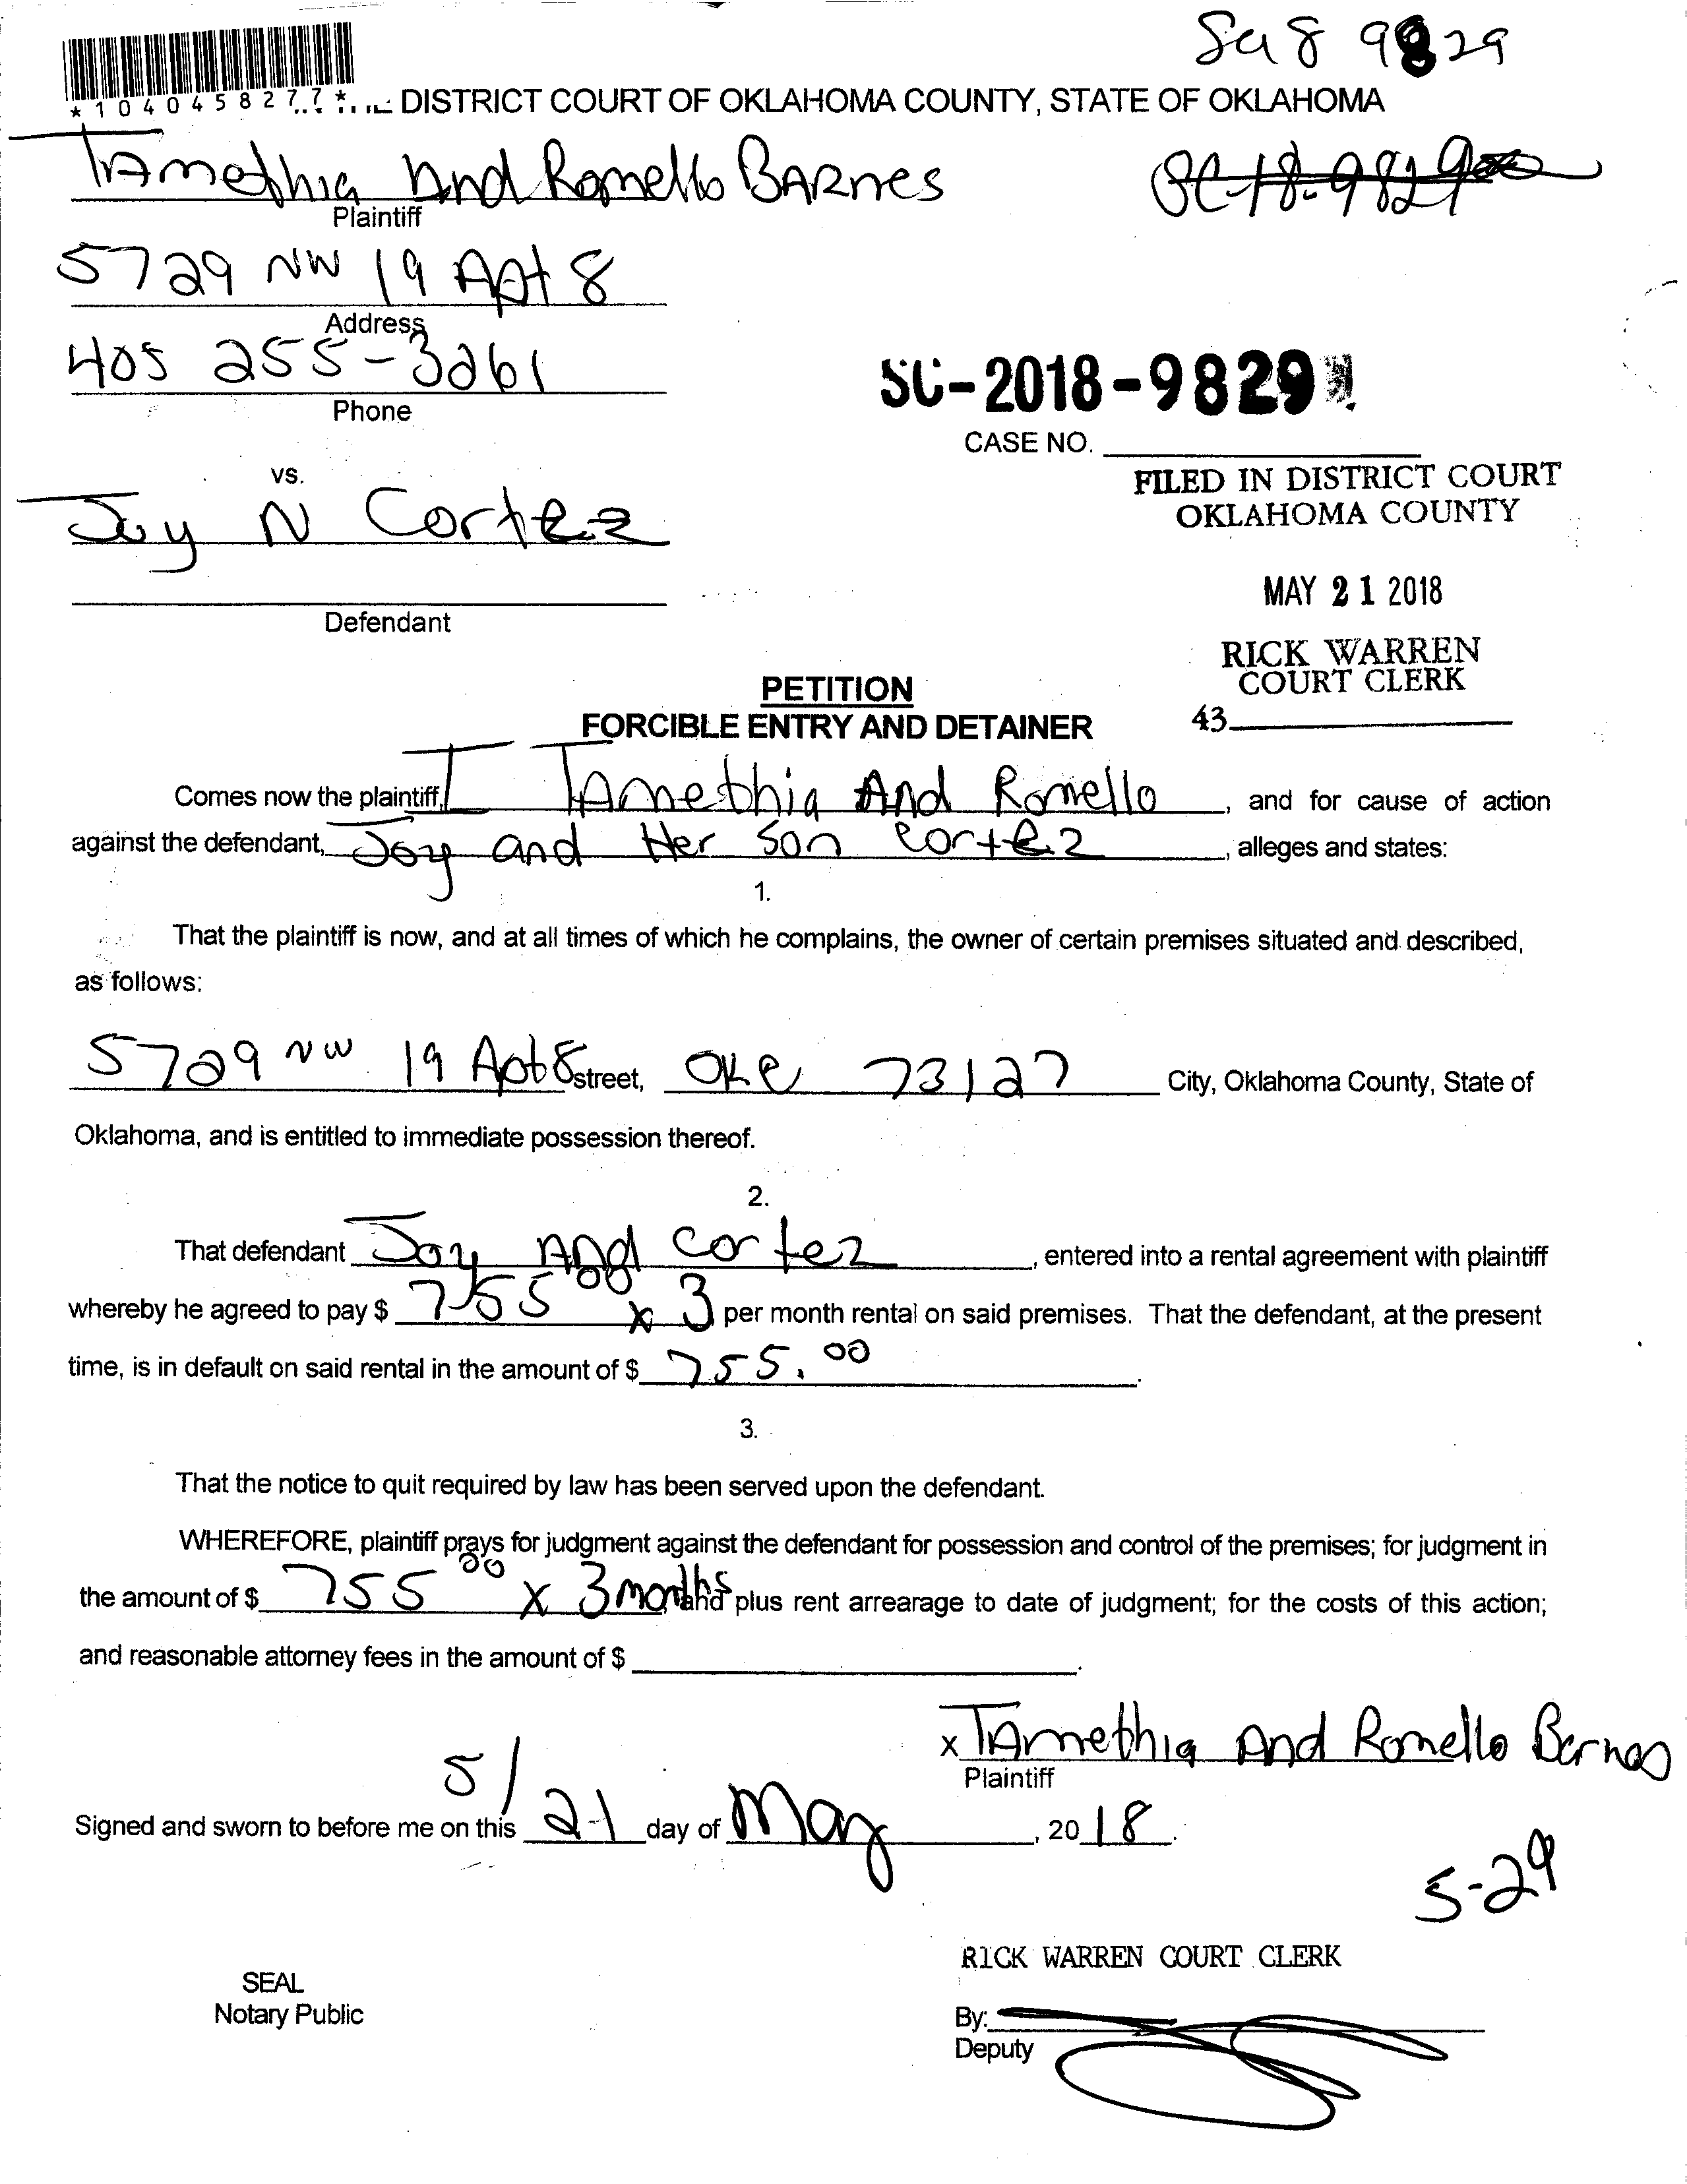 Sc18 9829
*1040458277*
DISTRICT COURT OF OKLAHOMA COUNTY, STATE OF OKLAHOMA
TAmethia And Romello BARnes
SC-18-9829
Plaintiff
5729 NW 19 Apt 8
Address
405 255-3261
Phone
SC-2018-9829
CASE NO.
vs.
FILED IN DISTRICT COURT
OKLAHOMA COUNTY
Joy N Cortez
MAY 21 2018
Defendant
RICK WARREN
COURT CLERK
43
PETITION
FORCIBLE ENTRY AND DETAINER
Comes now the plaintiff, I TAmethia And Romello, and for cause of action
against the defendant, Joy and Her Son Cortez, alleges and states:
1.
That the plaintiff is now, and at all times of which he complains, the owner of certain premises situated and described,
as follows:
5729 NW 19 Apt 8 street, OKC 73127 City, Oklahoma County, State of
Oklahoma, and is entitled to immediate possession thereof.
2.
That defendant Joy And Cortez, entered into a rental agreement with plaintiff
whereby he agreed to pay $ 755 00 x 3 per month rental on said premises. That the defendant, at the present
time, is in default on said rental in the amount of $ 755.00.
3.
That the notice to quit required by law has been served upon the defendant.
WHEREFORE, plaintiff prays for judgment against the defendant for possession and control of the premises; for judgment in
the amount of $ 755 00 x 3 months and plus rent arrearage to date of judgment; for the costs of this action;
and reasonable attorney fees in the amount of $.
x TAmethia And Romello Barnes
Plaintiff
5/
Signed and sworn to before me on this 21 day of May, 2018.
5-29
RICK WARREN COURT CLERK
SEAL
Notary Public
By:
Deputy